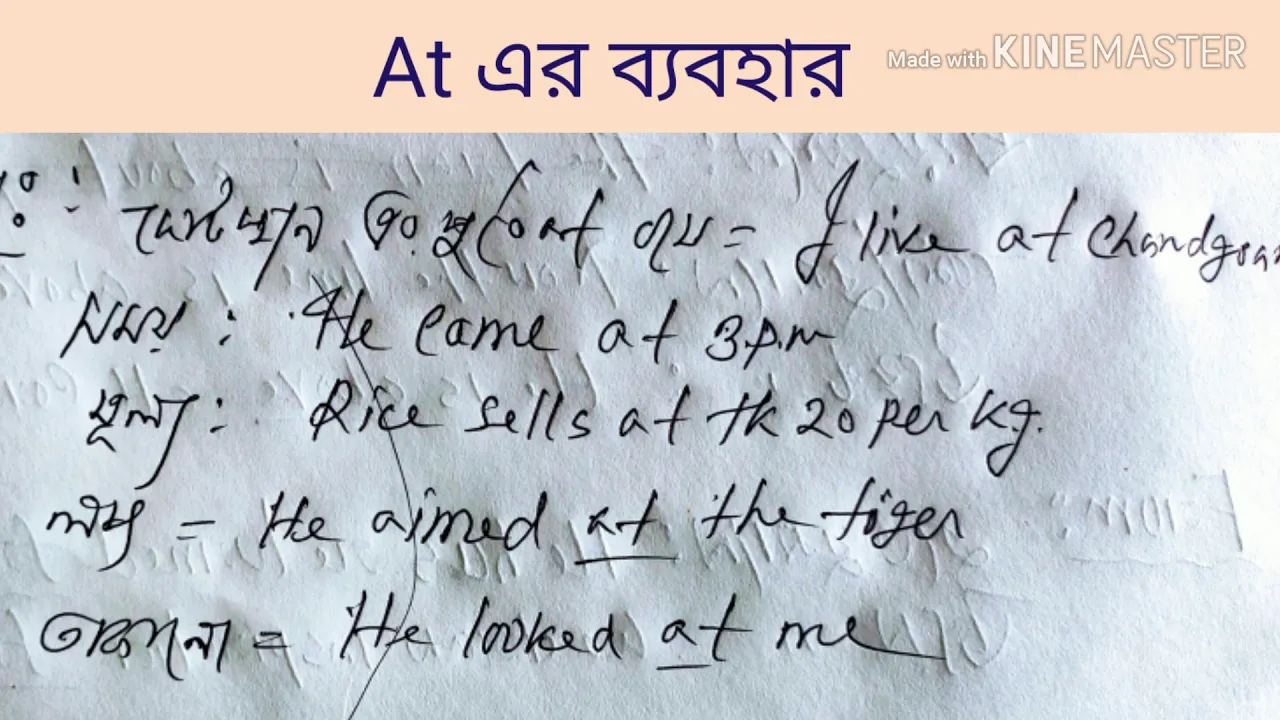 At এর ব্যবহার
Made with KINEMASTER
at বসে = I live at
সময় : He came at 3 p.m
মূল্য : Rice sells at tk 20 per kg.
লক্ষ্য = He aimed at the tiger
তাকানো = He looked at me